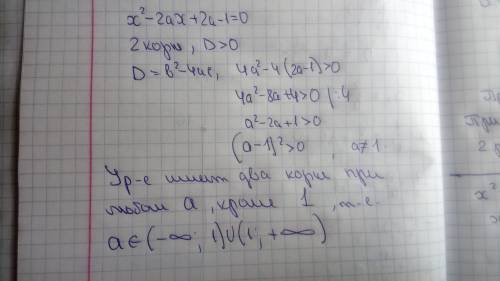 x²-2ax+2a-1=0
2 корн, D>0
D=в²-4ac, 4a²-4(2a-1)>0
4a²-8a+4>0 |:4
a²-2a+1>0
(a-1)²>0, a≠1.
Ур-е имеет два корня при
любом a, кроме 1, т.е.
a∈(-∞; 1)∪(1; +∞)
При
2
x²